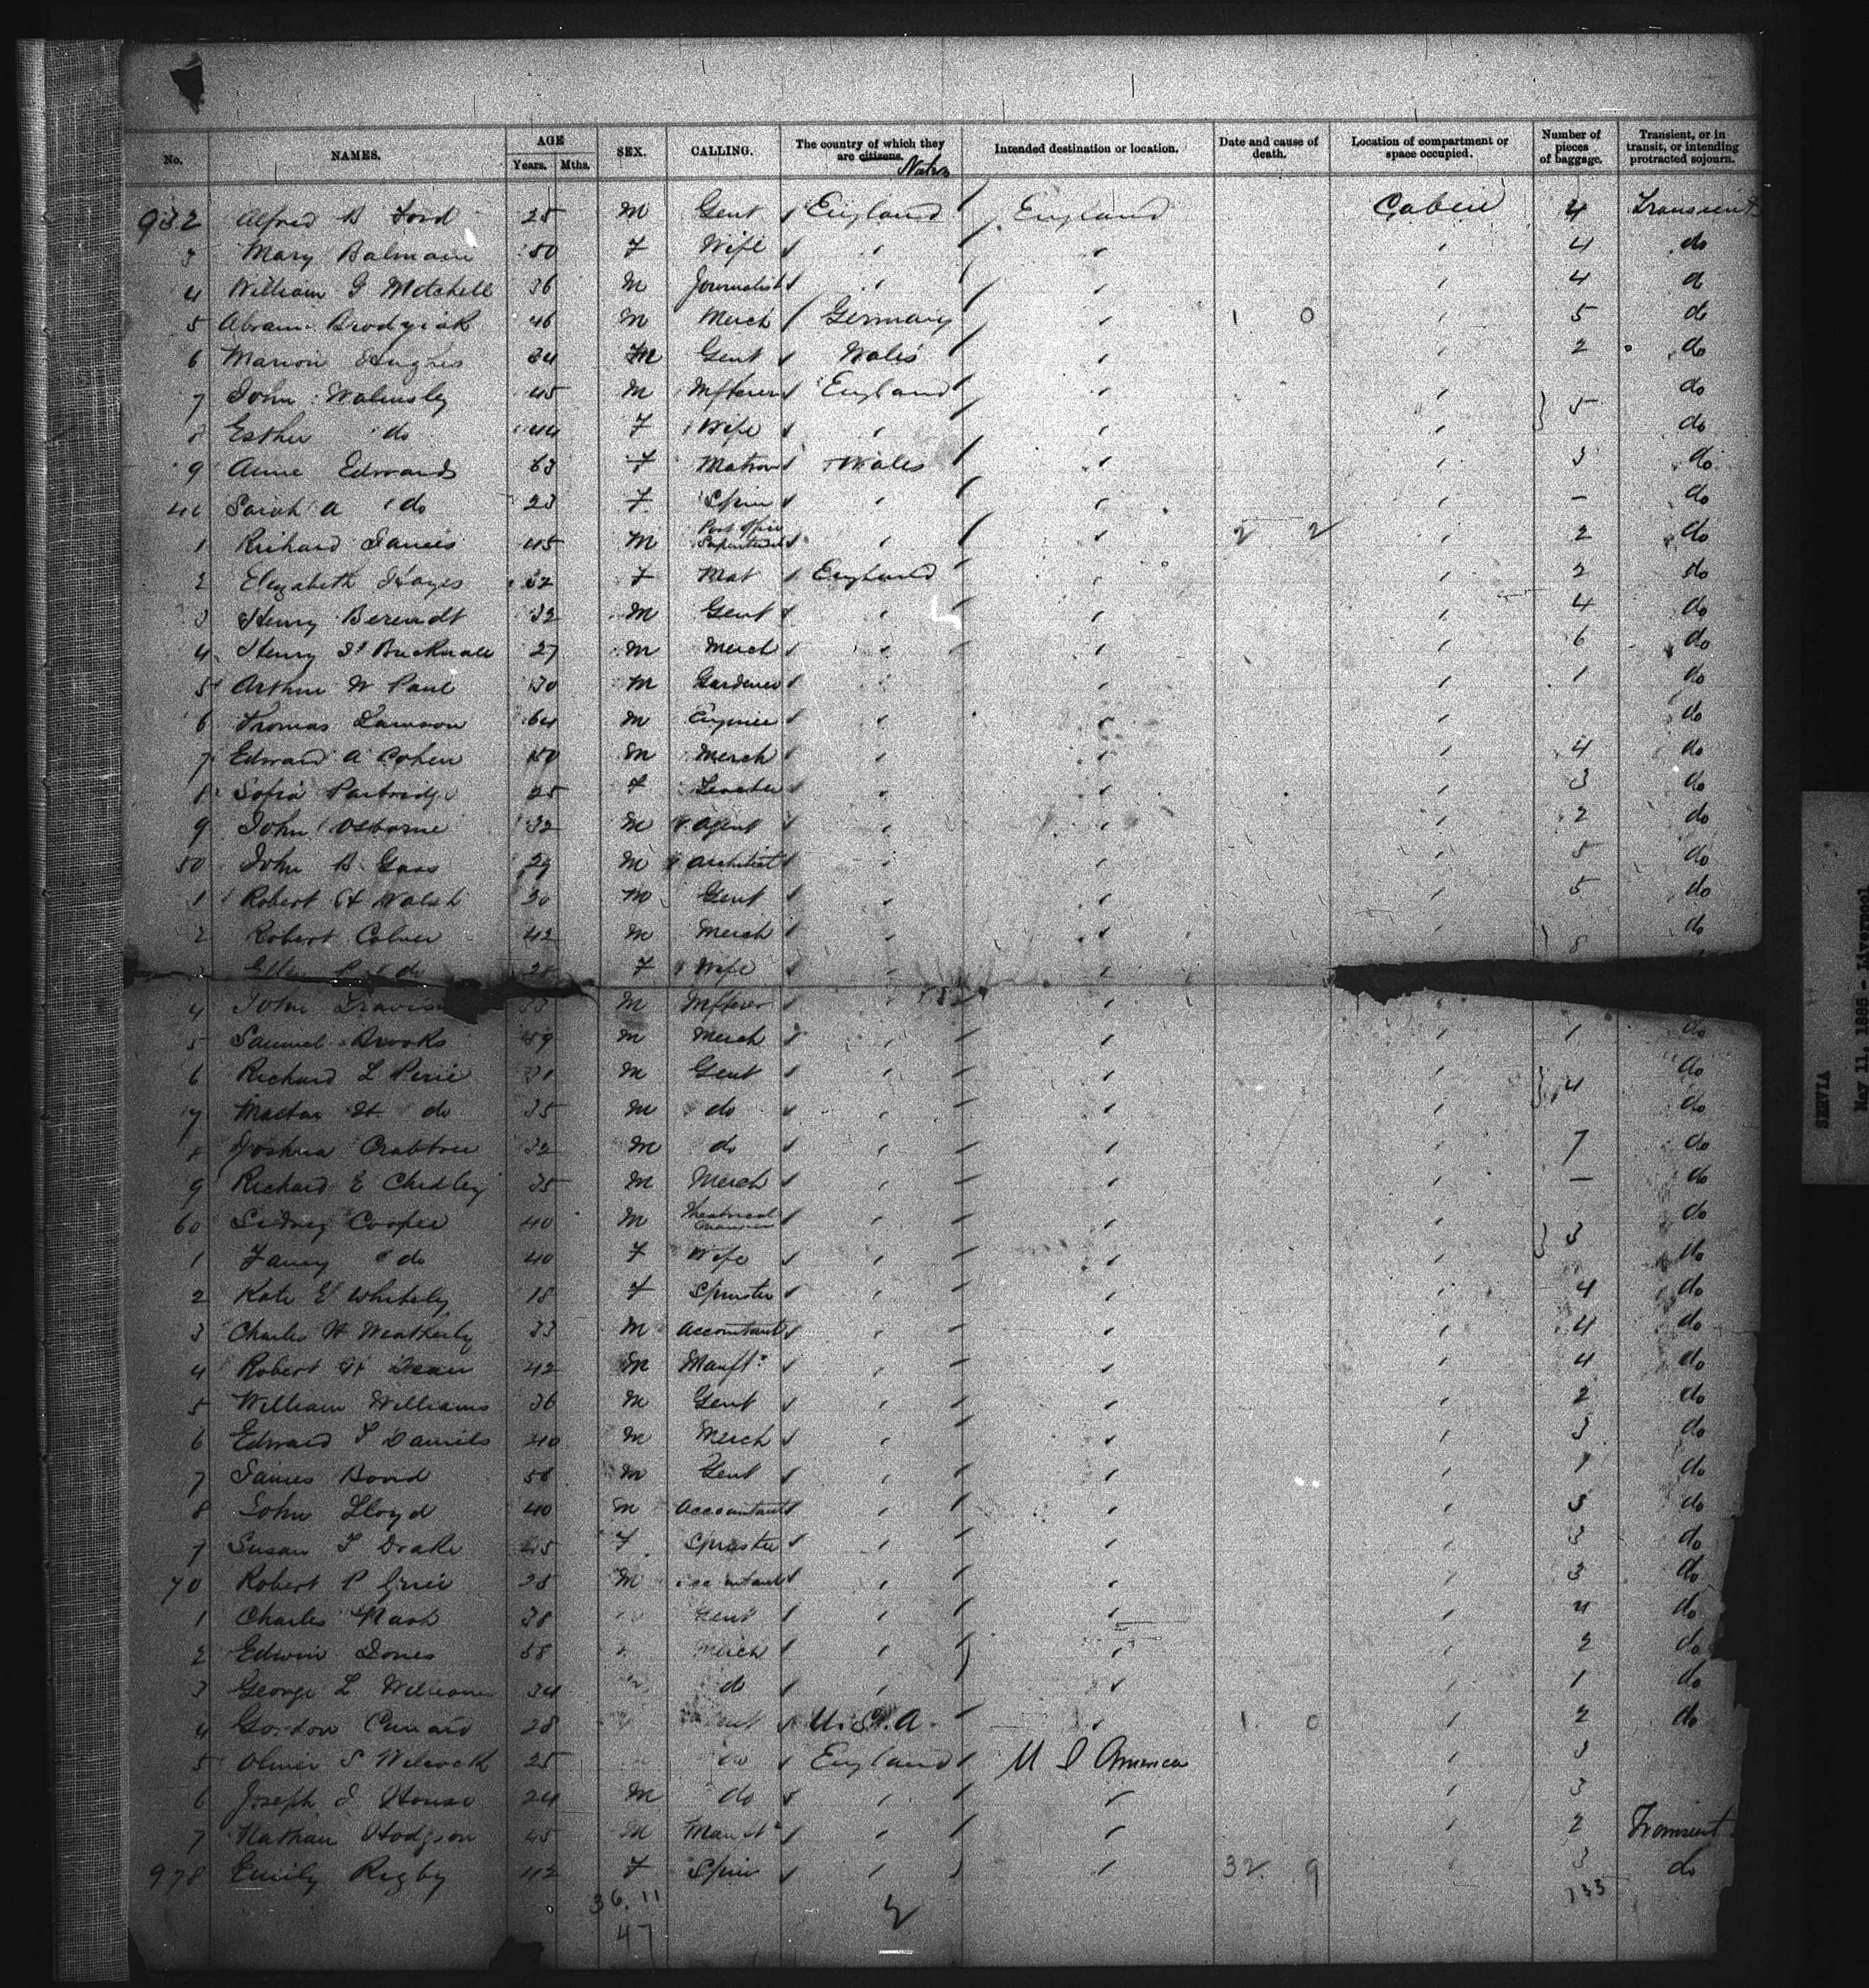 No. NAMES. AGE Years. Mths. SEX. CALLING. The country of which they are citizens. Intended destination or location. Date and cause of death. Location of compartment or space occupied. Number of pieces of baggage. Transient, or in transit, or intending protracted sojourn.
932 Alfred B Ford 25 M Gent England England Cabin 4 Transient
3 Mary Balmain 50 F Wife " " " 4 do
4 William G Mitchell 36 M Journalist " " " 4 do
5 Abram 46 M Merch Germany " 1 0 " 5 do
6 Marion Hughes 34 M Gent Wales " " 2 do
7 John Walmsley 45 M Mfterer England " " } 5 do
8 Esther do 44 F Wife " " " do
9 Anne Edwards 63 F Matron Wales " " 3 do
40 Sarah A do 23 F Spin " " " — do
1 Richard 45 M Post Office " " 2 2 " 2 do
2 Elizabeth Hayes 32 F Mat England " " 2 do
3 Henry Berendt 32 M Gent " " " 4 do
4 Henry Bucknall 27 M Merch " " " 6 do
5 Arthur W Paul 30 M Gardener " " " 1 do
6 Thomas Lawson 64 M " " " do
7 Edward A Cohen 50 M Merch " " " 4 do
8 Sofia Partridge 25 F Teacher " " " 3 do
9 John Osborne 32 M Agent " " " 2 do
50 John B. Gass 29 M Architect " " " 5 do
1 Robert H Walsh 30 M Gent " " " 5 do
2 Robert 42 M Merch " " " } 8 do
Ellen P do F Wife " "
4 John Travis 33 M Mfterer " " "
5 Samuel Brooks 59 M Merch " " " 1 do
6 Richard L Pirie 31 M Gent " " " } 4 do
7 H do 35 M do " " " do
8 Joshua Crabtree 32 M do " " " 7 do
9 Richard E Chidley 35 M Merch " " " — do
60 Sidney Cooper 40 M Theatrical Manager " " " } 3 do
1 Fanny do 40 F Wife " " " do
2 Kate E Whitely 18 F Spinster " " " 4 do
3 Charles W Weatherly 33 M Accountant " " " 4 do
4 Robert H Dean 42 M Manftr " " " 4 do
5 William Williams 36 M Gent " " " 2 do
6 Edward I Daniels 40 M Merch " " " 3 do
7 James Bond 56 M Gent " " " 1 do
8 John Lloyd 40 M Accountant " " " 3 do
9 Susan F Drake 45 F Spinster " " " 3 do
70 Robert P 28 M Accountant " " " 3 do
1 Charles Nash 38 Gent " " " 4 do
2 Edwin Jones 58 Merch " " 2 do
3 George L Williams 34 do " " 1 do
4 Gordon Cunard 28 Gent U.S.A. " 1 0 " 2 do
5 Oliver S Wilcock 25 do England U S America " 3
6 Joseph J House 24 M do " " " 3
7 Nathan Hodgson 45 M Manftr " " " 2 Transient
978 Emily Rigby 42 F Spin " " 32 9 " 3 do
36. 11 133
47
SERVIA
May 11, 1885 - Liverpool